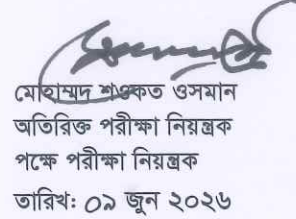 মোহাম্মদ শওকত ওসমান
অতিরিক্ত পরীক্ষা নিয়ন্ত্রক
পক্ষে পরীক্ষা নিয়ন্ত্রক
তারিখঃ ০৯ জুন ২০২৬